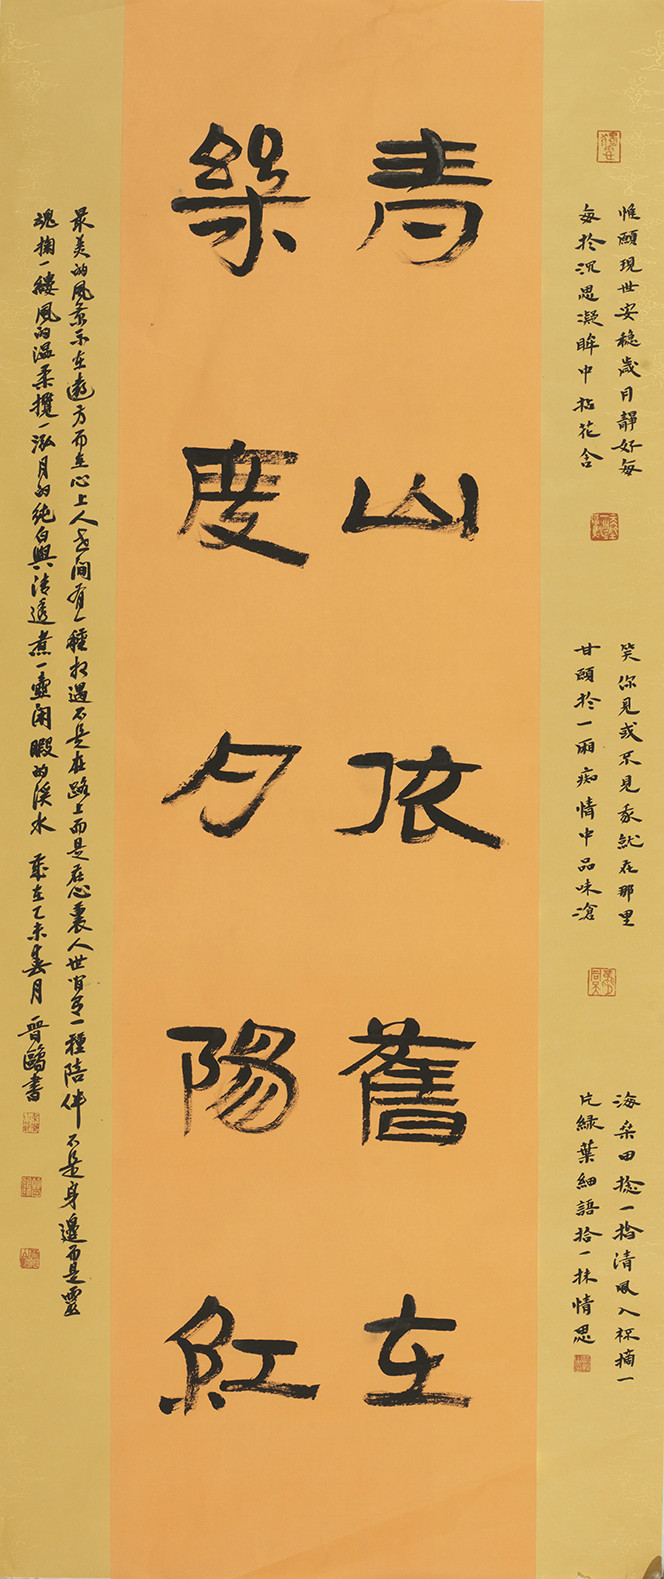 惟願現世安穩歲月靜好每
每於沉思凝眸中拈花含
笑你見或不見我就在那里
甘願於一廂痴情中品味滄
海桑田捻一指清風入袖摘一
片綠葉細語拾一抹情思
青山依舊在
幾度夕陽紅
最美的風景不在遠方而在心上人世间有一種相遇不是在路上而是在心裏人世间有一種陪伴不是身邊而是靈
魂掬一縷風的溫柔攬一泓月的純白與清透煮一壺閑暇的溪水 歲在乙未月 晉鷗書